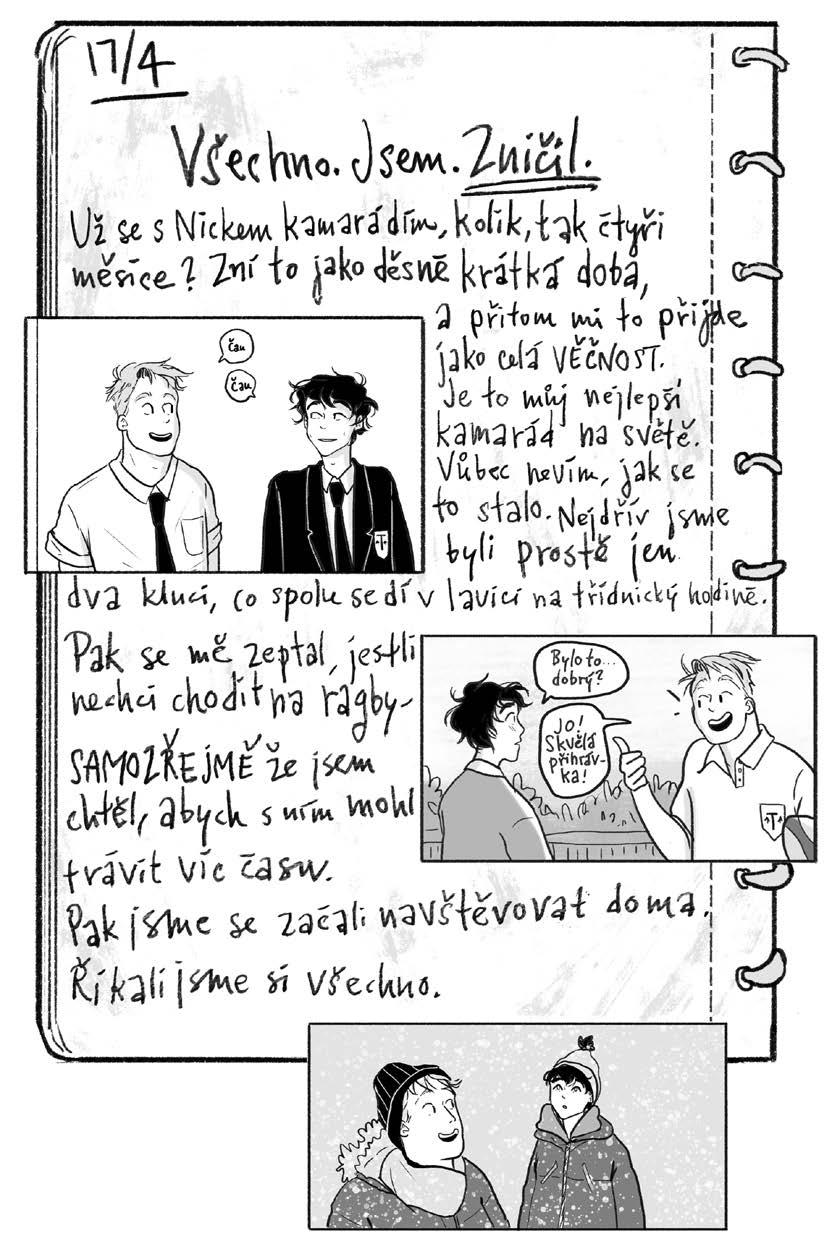 17/4
Všechno. Jsem. Zničil.
Už se s Nickem kamarádím, kolik, tak čtyři
měsíce? Zní to jako děsně krátká doba,
a přitom mi to přijde
jako celá VĚČNOST.
Je to můj nejlepší
kamarád na světě.
Vůbec nevím, jak se
to stalo. Nejdřív jsme
byli prostě jen
čau
čau
dva kluci, co spolu sedí v lavici na třídnický hodině.
Pak se mě zeptal, jestli
nechci chodit na ragby-
SAMOZŘEJMĚ že jsem
chtěl, abych s ním mohl
trávit víc času.
Bylo to...
dobrý?
Jo!
Skvělá
přihráv-
ka!
Pak jsme se začali navštěvovat doma.
Říkali jsme si všechno.